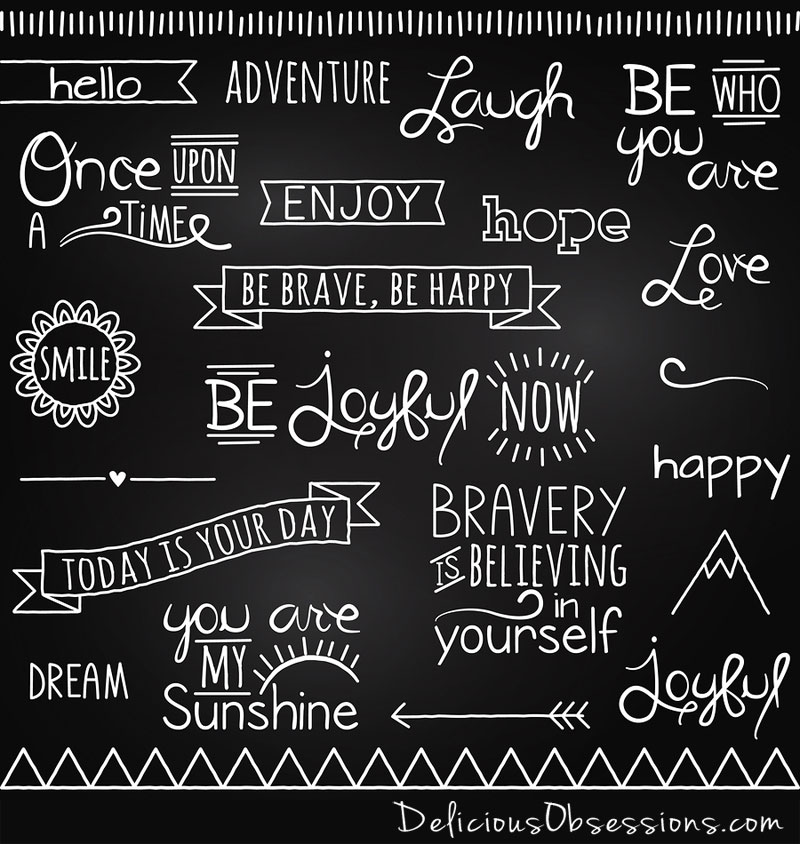 hello
ADVENTURE
Laugh
BE WHO
you are
Once UPON
A TiME
ENJOY
hope
Love
BE BRAVE, BE HAPPY
SMILE
BE joyful NOW
happy
TODAY IS YOUR DAY
BRAVERY
IS BELIEVING
in
yourself
you are
MY
Sunshine
DREAM
joyful
DeliciousObsessions.com